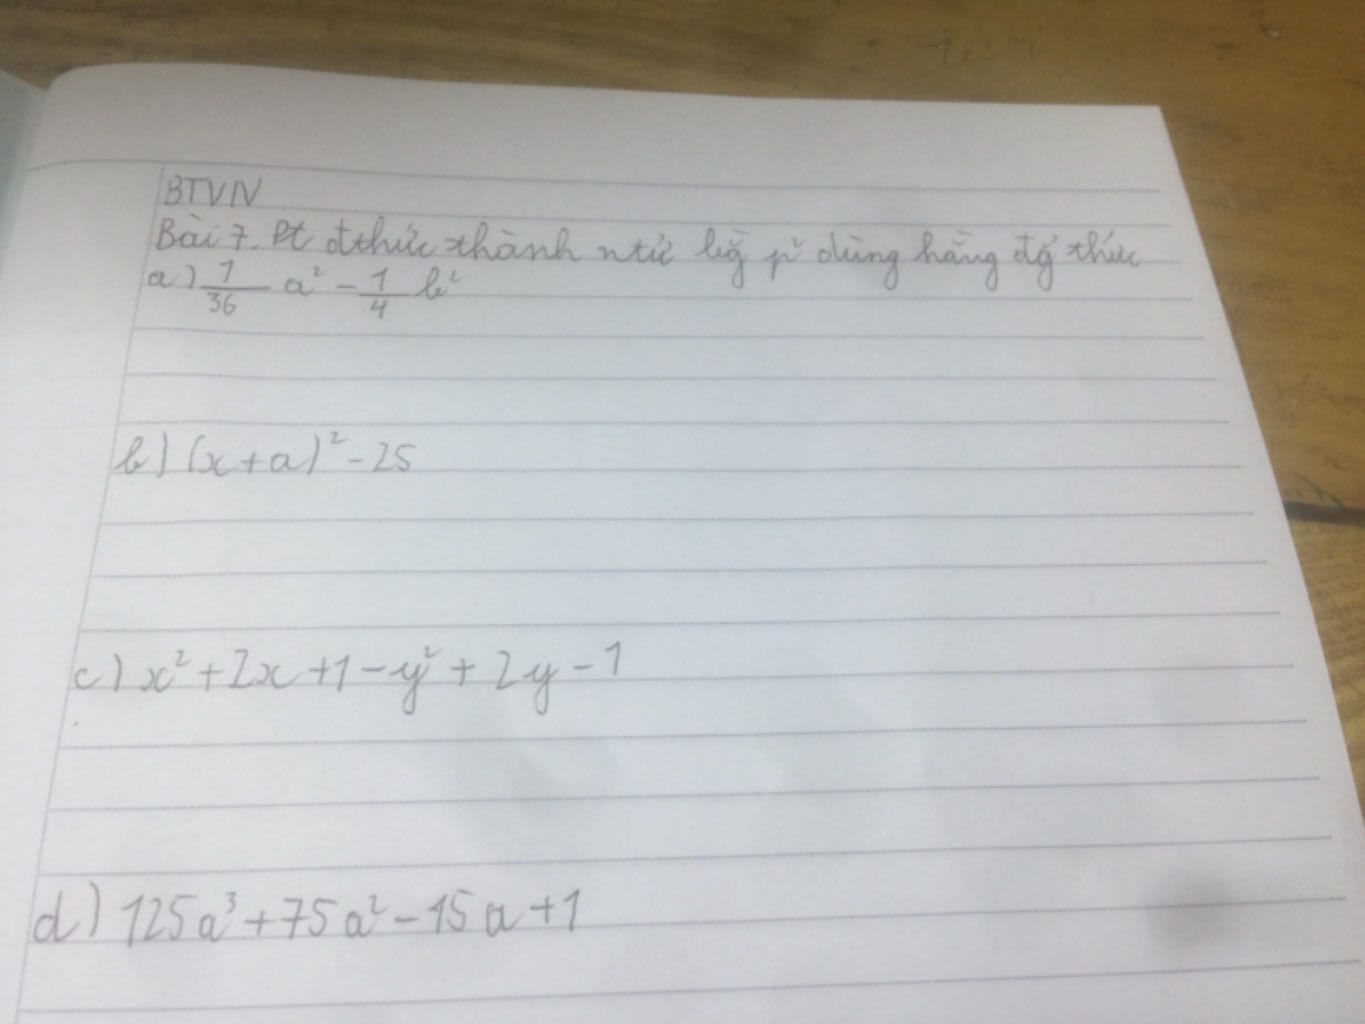 BTVN
Bài 7. Pt đthức thành ntử bg̃ p² dùng hằng đg̃ thức
a) 1/36 a² - 1/4 b²
b) (x+a)² - 25
c) x² + 2x + 1 - y² + 2y - 1
d) 125a³ + 75a² - 15a + 1